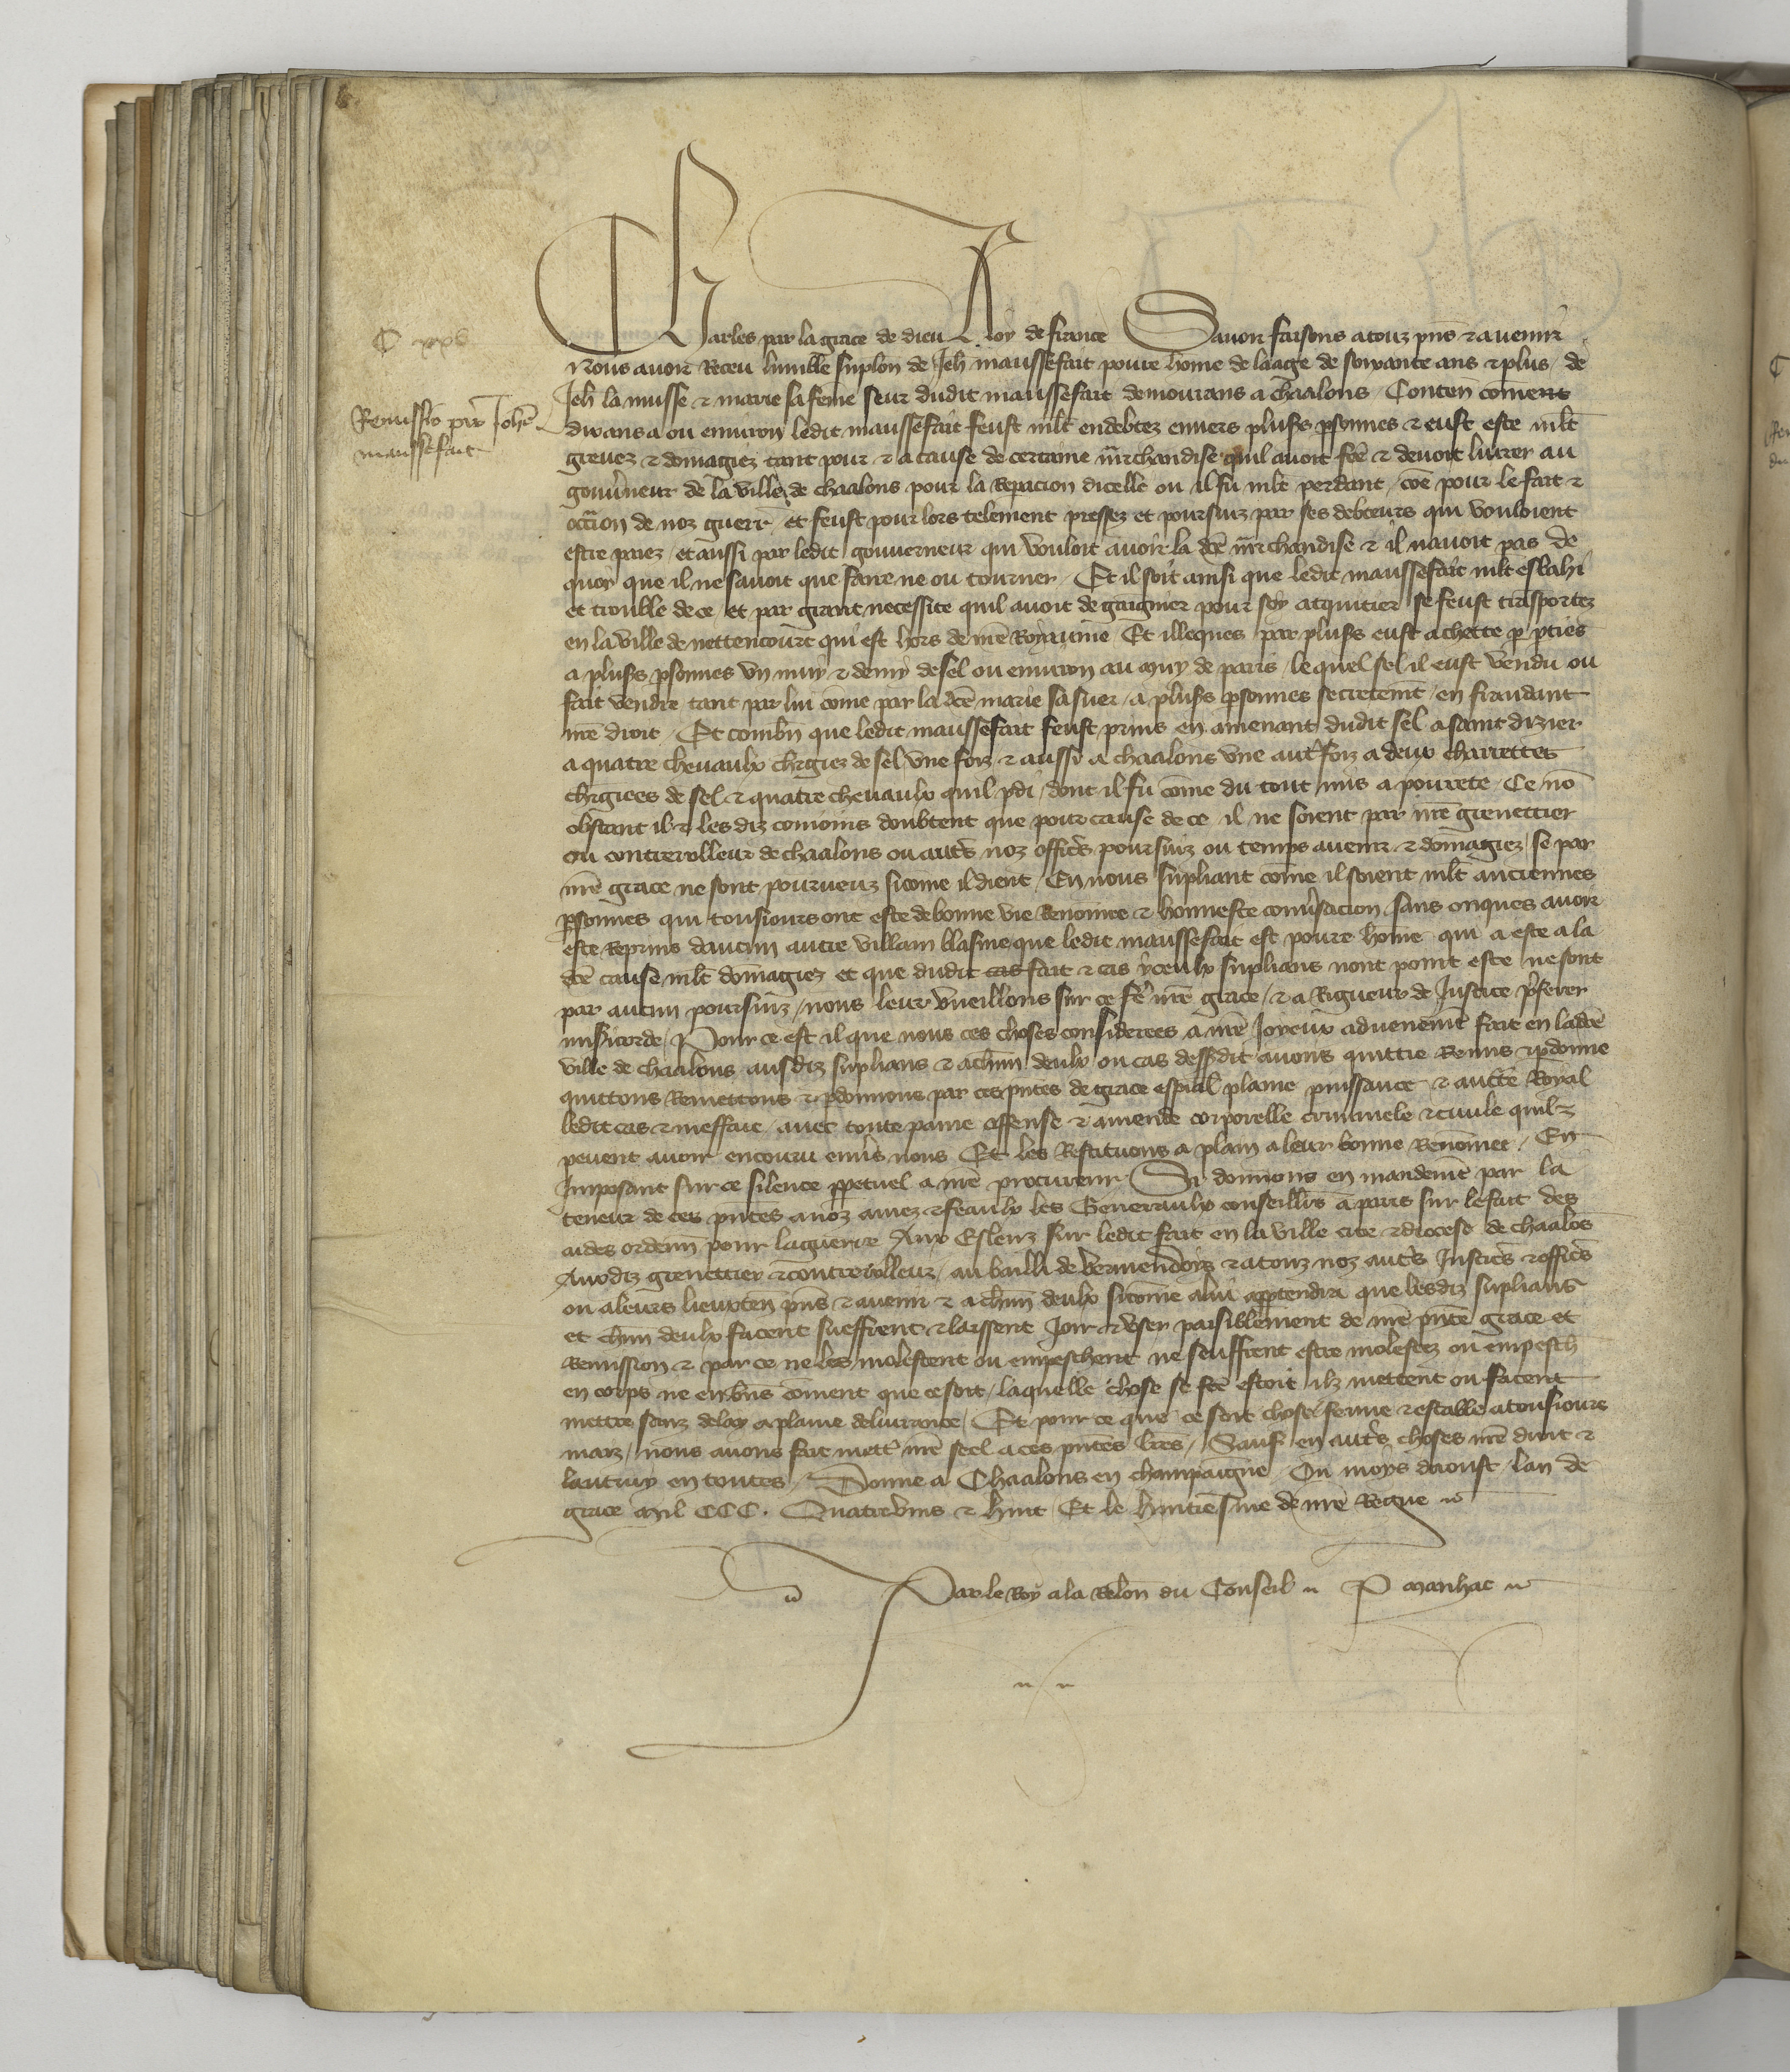 C xxv
Remissio pro Johe
maussefait
Charles par la grace de dieu Roy de france Savoir faisons a touz pns & avenir
Nous avoir Receu lumble suplon de Jeh maussefait povre home de laage de soixante ans & plus / de
Jeh la musse & marie sa feme seur dudit maussefait demourans a chaalons / Conten coment
dix ans a ou environ ledit maussefait feust mlt endebtez envers pluss psonnes & eust este mlt
grevez & domagiez tant pour & a cause de certaine mrchandise quil avoit fce & devoit livrer au
gouvneur de la ville de chaalons pour la Repacion dicelle ou il fu mlt perdant / coe pour le fait &
occion de noz guerr et feust pour lors telement pressez et poursuiz par ses debteurs qui vouloient
estre paiez / et aussi par ledit gouverneur qui vouloit avoir la dce mrchandise & il navoit pas de
quoy que il ne savoit que faire ne ou tourner / Et il soit ainsi que ledit maussefait mlt esbahi
et trouble de ce / et par grant necessite quil avoit de gaignier pour soy acquitier se feust trasportez
en la ville de nettencourt qui est hors de nre Royaume Et illeques par pluss eust achette p pties
a pluss psonnes un muy & demy de sel ou environ au muy de paris / lequel sel il eust vendu ou
fait vendre tant par lui come par la dce marie sa suer / a pluss psonnes secretemt / en fraudant
nre droit / Et combn que ledit maussefait feust prins en amenant dudit sel a saint dizier
a quatre chevaulx chrgiez de sel une foiz & aussi a chaalons une autr foiz a deux charrettes
chrgiees de sel & quatre chevaulx quil pdi / dont il fu come du tout mis a povrete / Ce no
obstant il & les diz conioins doubtent que pour cause de ce il ne soient par nre grenettier
ou contrerolleur de chaalons ou autrs noz officrs poursuiz ou temps avenir & domagiez / se par
nre grace ne sont pourveuz sicome il dient / En nous supliant come il soient mlt anciennes
psonnes qui tousiours ont este de bonne vie Renomee & honneste convsacion sans onques avoir
este Reprins daucun autre villain blasme que ledit maussefait est povre home qui a este a la
dce cause mlt domagiez et que dudit cas fait & cas yceulx suplians nont point este ne sont
par aucun poursuiz / nous leur vueillons sur ce fe nre grace / & a Rigueur de Justice pferer
misicorde / Pour ce est il que nous ces choses considerees a nre Joyeux advenemt fait en ladce
ville de chaalons ausdiz suplians & a chun deulx ou cas dessdit avons quittie Remis & pdonne
quittons Remettons & pdonnons par ces pntes de grace espial plaine puissance & auctte Royal
ledit cas & meffait / avec toute paine offense & amende corporelle criminele & civile quilz
pevent avoir encouru envs nous Et les Restituons a plain a leur bonne Renomee / En
Imposant sur ce silence ppetuel a nre procureur Si donnons en mandemt par la
teneur de ces pntes a noz amez & feaulx les Generaulx conseillrs a paris sur le fait des
aides ordenn pour la guerre Aux Esleuz sur ledit fait en la ville cite & diocese de chaalos
Auxdiz grenettier & contrerolleur / au bailli de vermendoys & a touz noz autrs Justicrs & officrs
ou a leurs lieuxten pns & avenir & a chun deulx sicome a lui apptendra que lesdiz suplians
et chun deulx facent sueffrent & laissent Joir & user paisiblement de nre pnte grace et
Remission & par ce ne les molestent ou empeschent ne seuffrent estre molestez ou empesch
en corps ne en biens coment que ce soit / laquelle chose se fce estoit ilz mettent ou facent
mettre sanz delay a plaine delivrance / Et pour ce que ce soit chose ferme & estable a tousiours
maiz / nous avons fait mettr nre seel a ces pntes lres / Sauf en autrs choses nre droit &
lautruy en toutes / Donne a Chaalons en champaigne Ou moys daoust lan de
grace Mil CCC . Quatrevins & huit / Et le huitiesme de nre Regne
Par le Roy a la Relon du Conseil P manhac